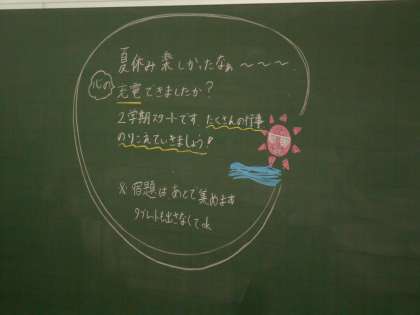 夏休み楽しかったなぁ〜〜〜
心の充電できましたか?
2学期スタートです。たくさんの行事
のりこえていきましょう!
※宿題はあとで集めます
タブレットも出さなくてok